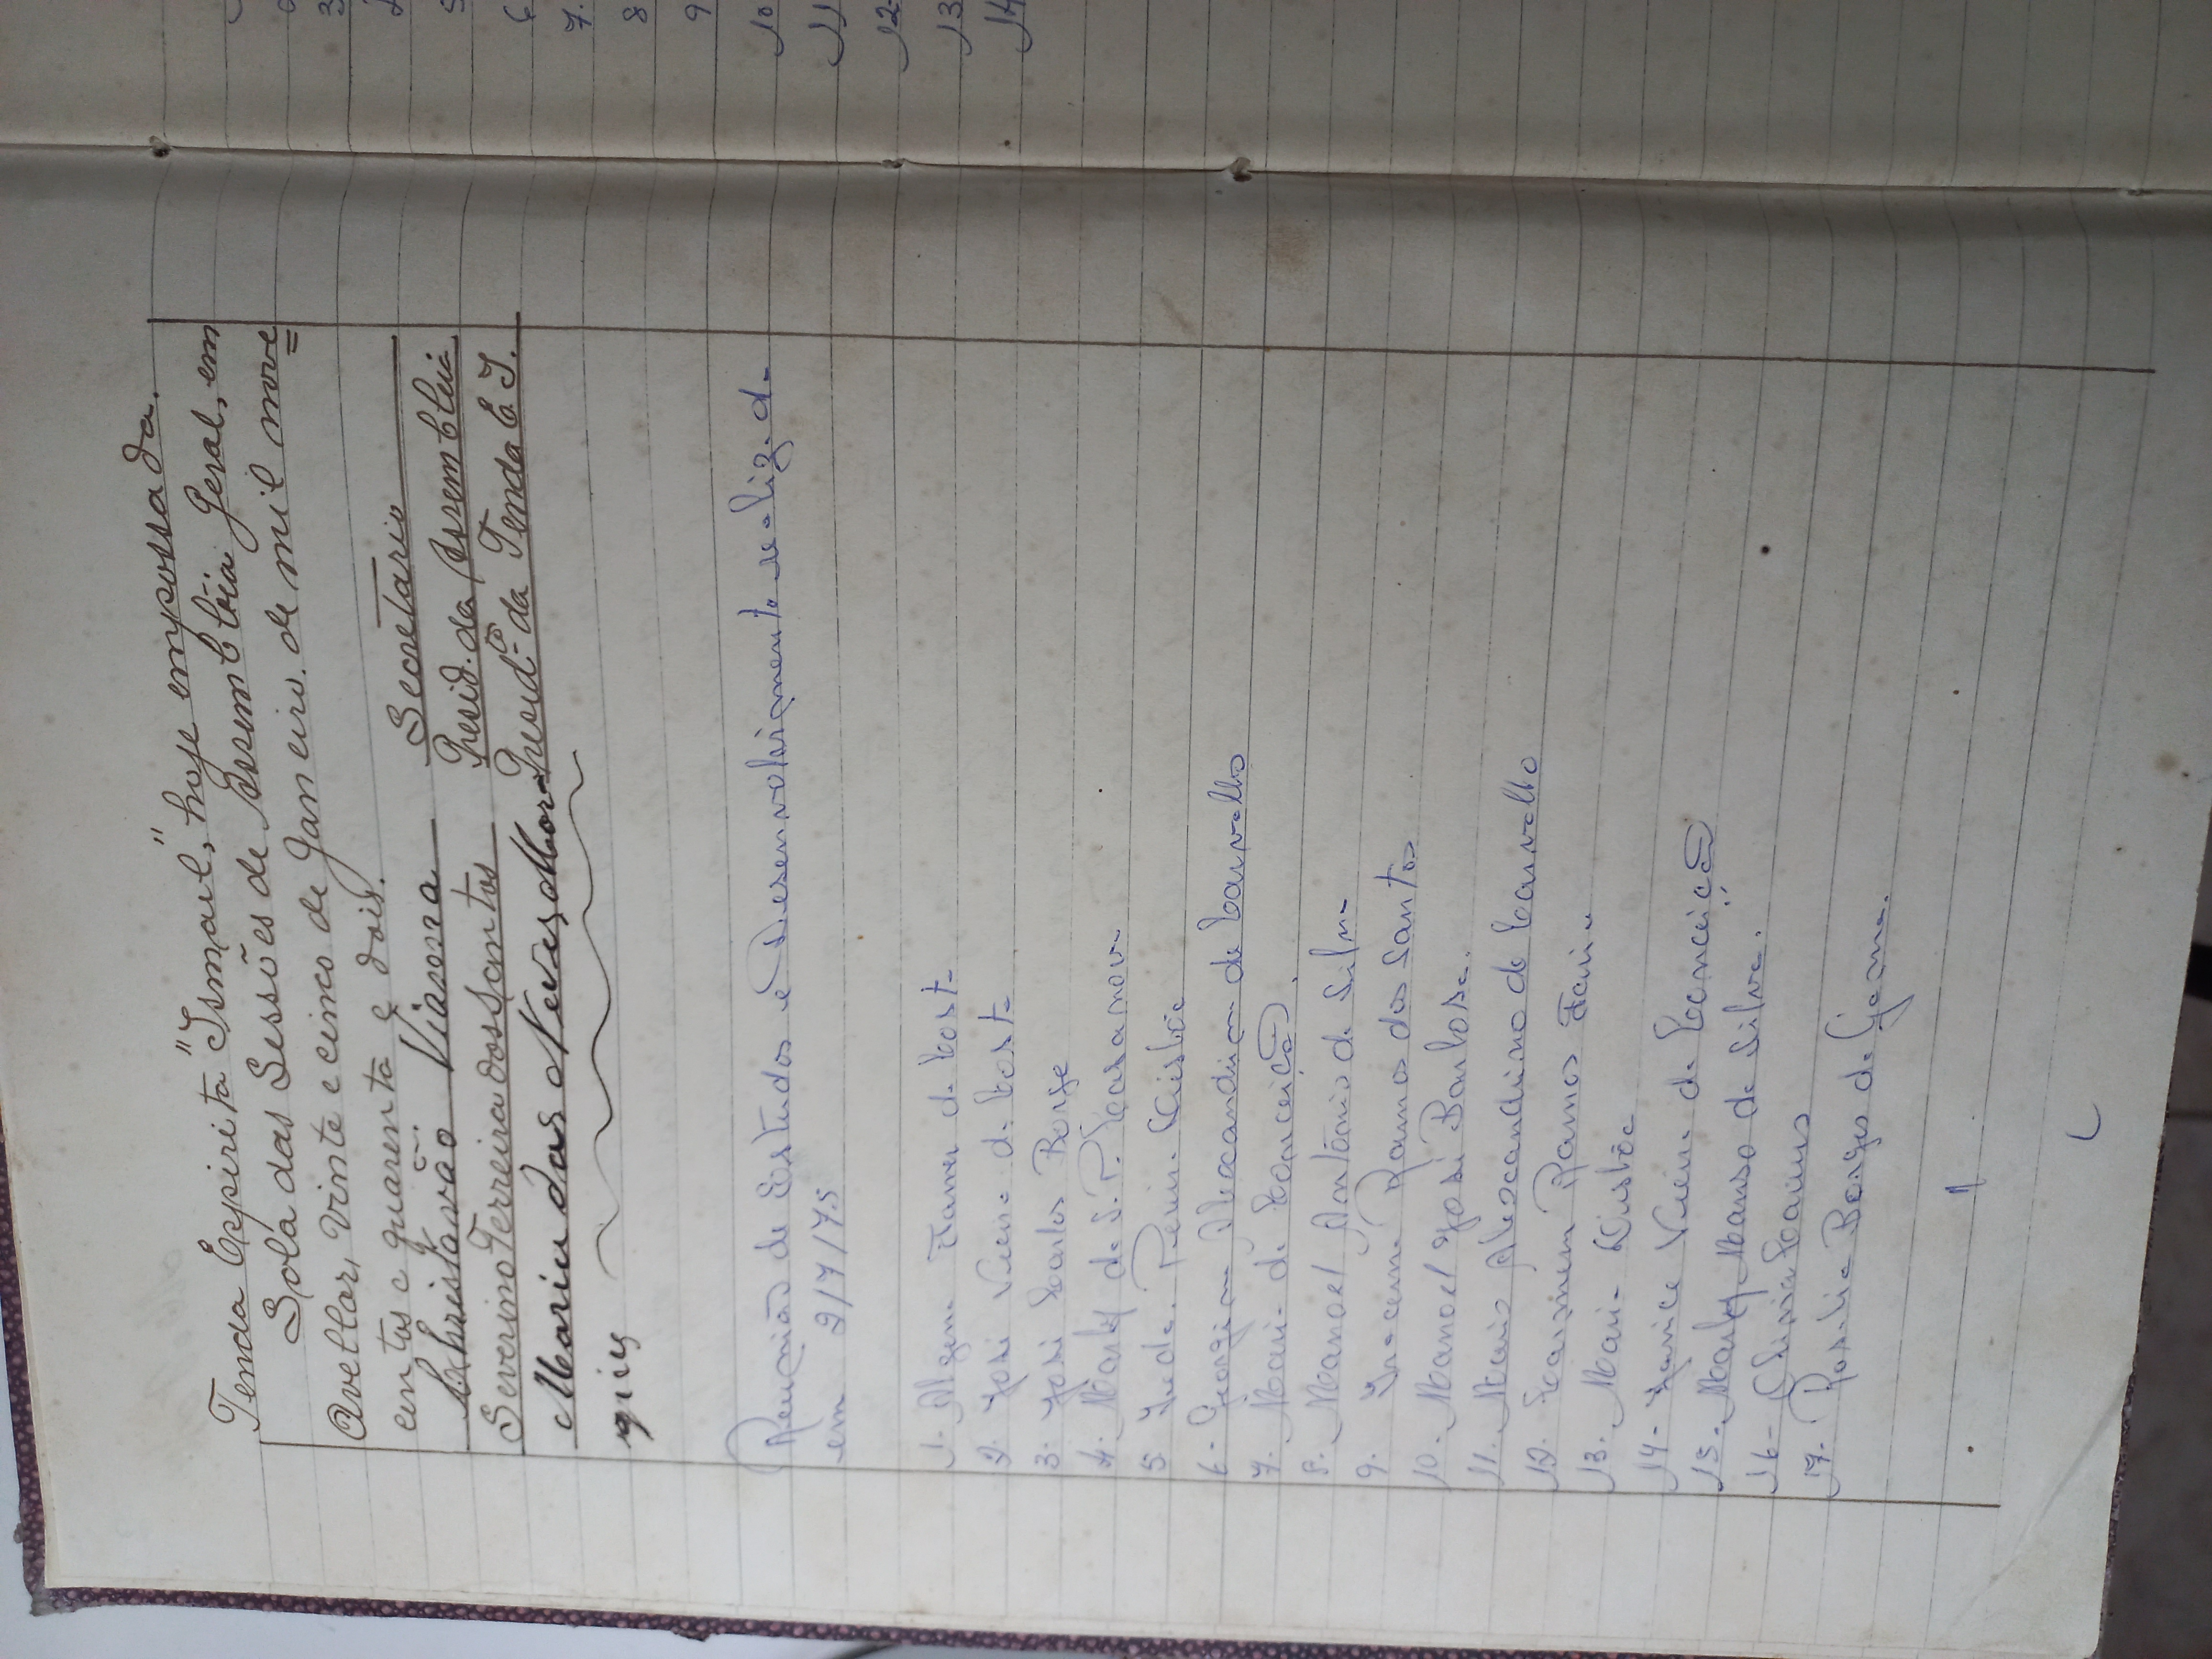 Tenda Espirita "Ismael," hoje empossada.
Sola das Sessões de Assembléia Geral, em
Avellar, vinte e cinco de Janeiro de mil nove=
centos e quarenta e dois.
Christovão Vianna Secretario
Severino Ferreira dos Santos Presid. da Assembleia
Maria das Neves Presidte da Tenda E. I.
Reunião de Estudos e Desenvolvimento realizada
em 2/7/75
1. da Costa
2. José Vieira da Costa
3. José Carlos Borge
4. Marly de S. P. Casanova
5.
6- Georgina Alexandrina de Carvalho
7. Maria da Conceição.
8. Manoel Antônio da Silva
9. Iracema Ramos dos Santos
10. Manoel José Barbosa.
11. Mario Alexandrino de Carvalho
12. Carmem Ramos Faria
13. Maria
14- Vieira da Conceição
15- Marly Manso da Silva.
16-
17. Rosalia Borges da Gama.
1
2
3
5
6
7.
8
9
10
11
12-
13
14